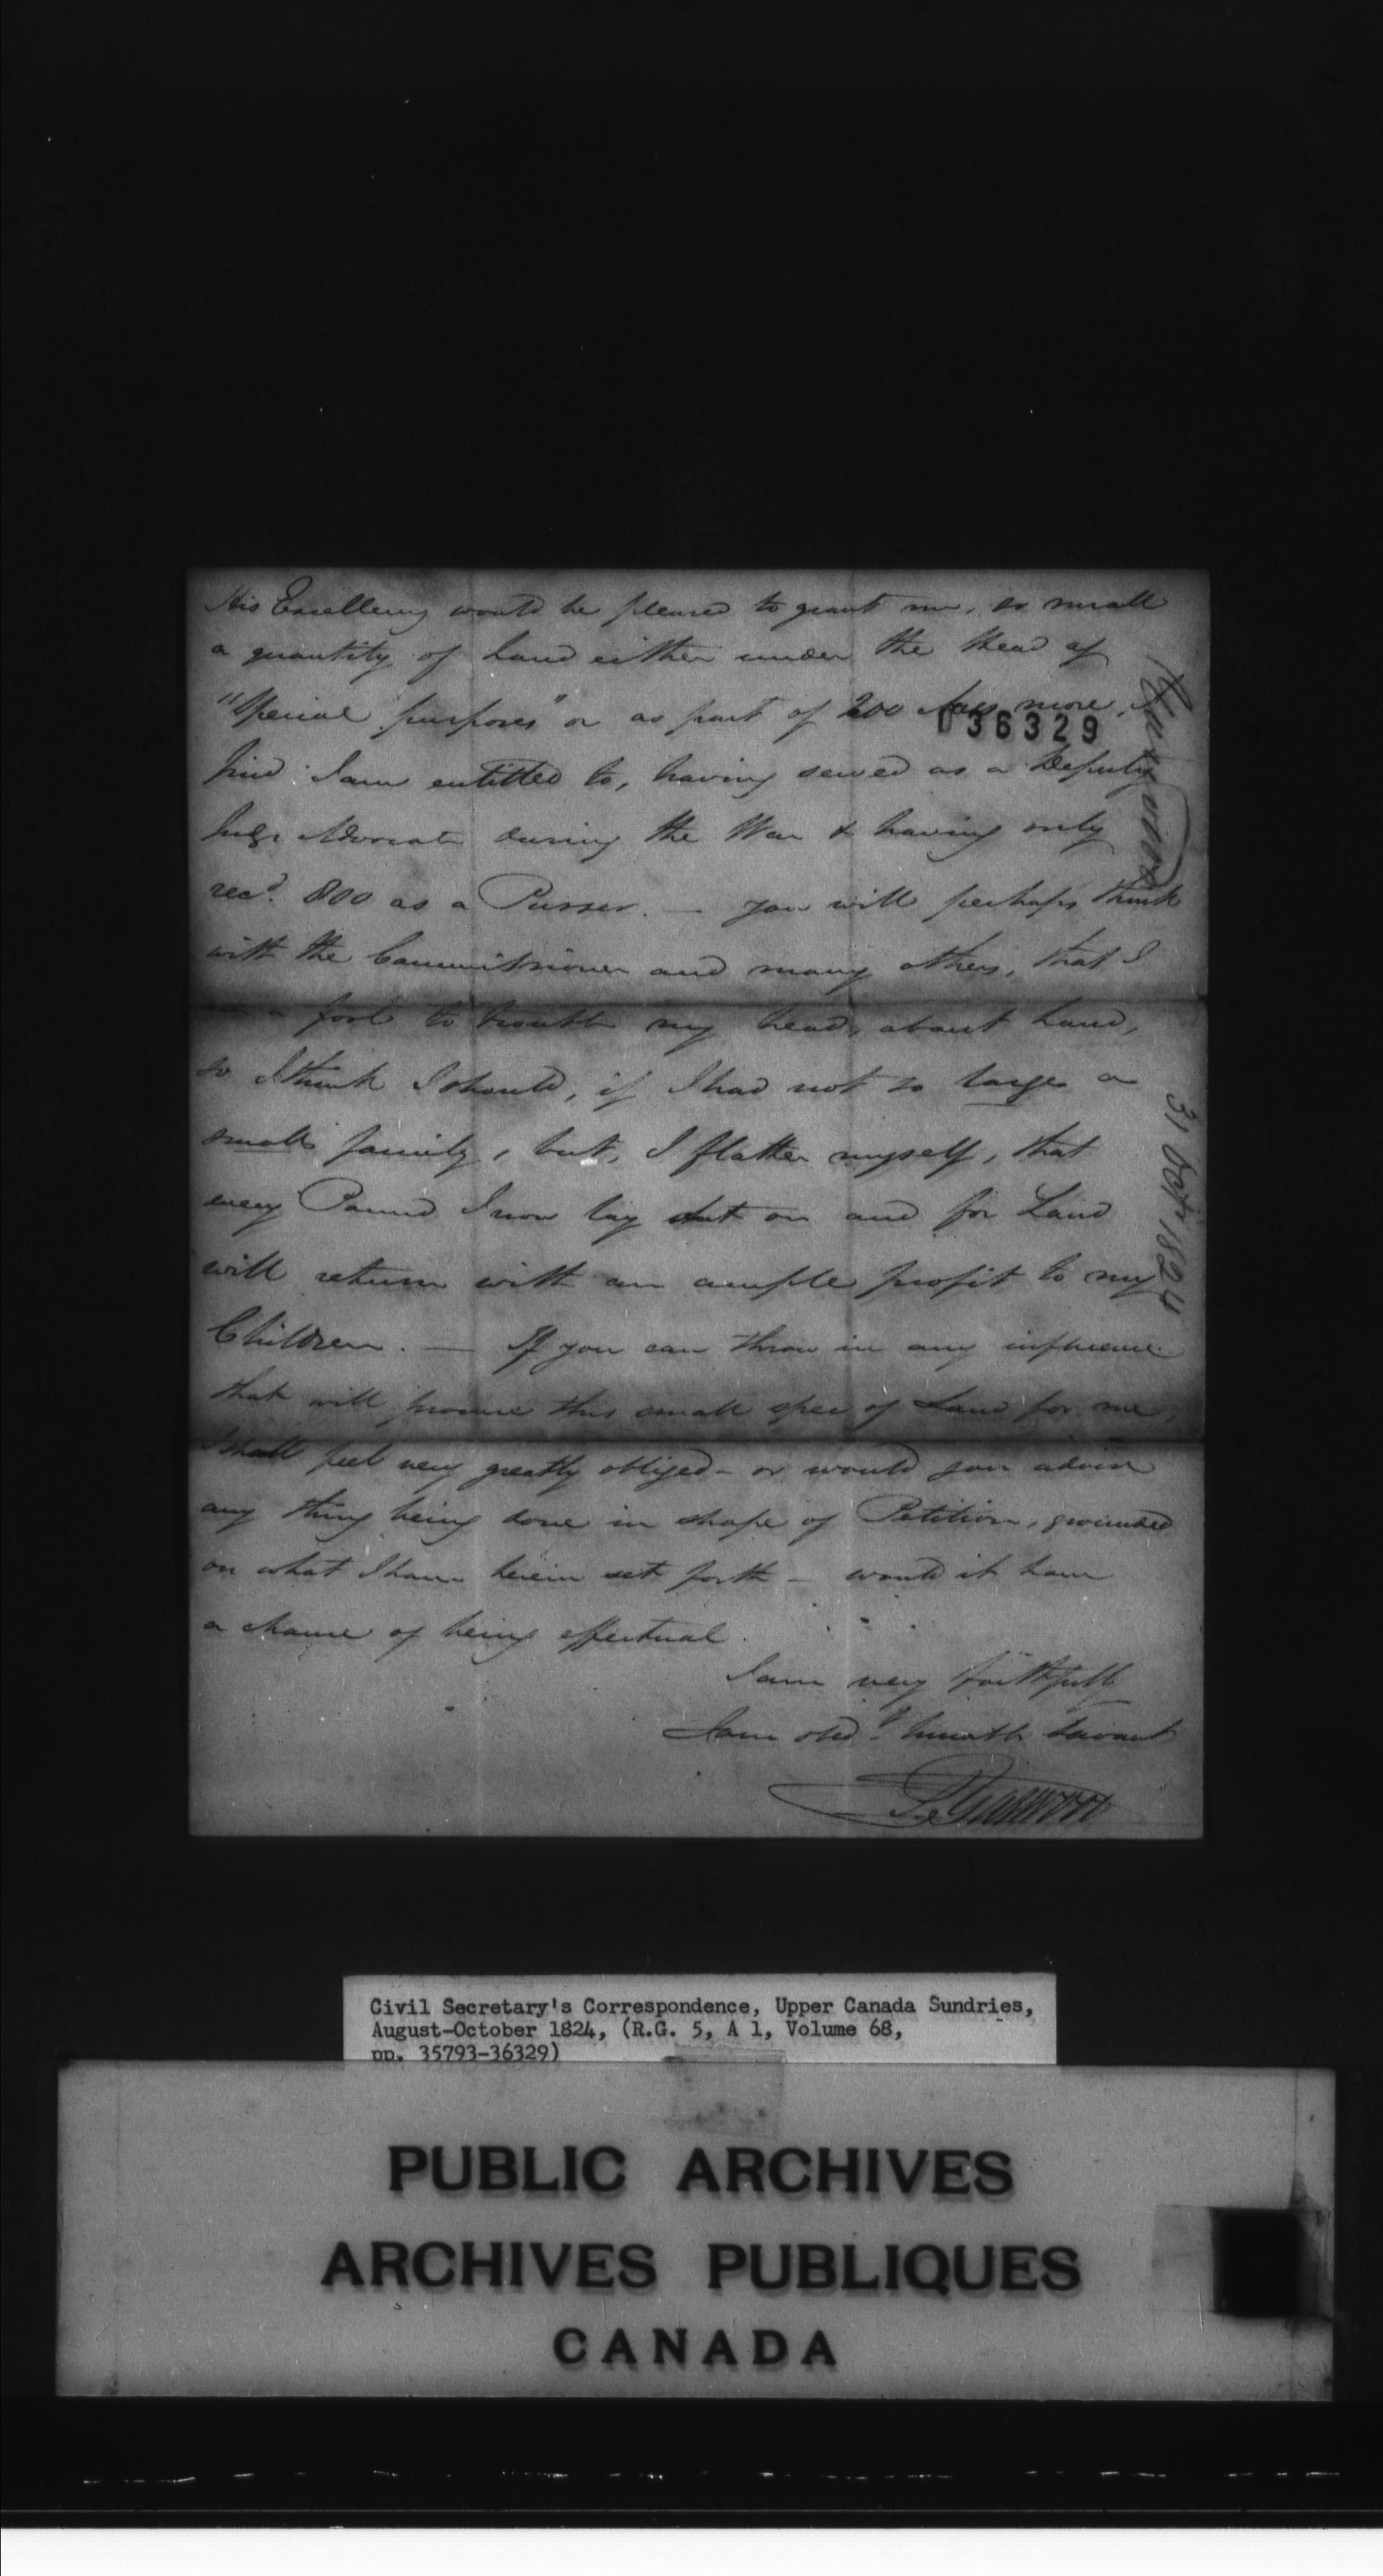 His Excellency would be pleased to grant me, so small
a quantity of Land either under the Head of
"Special purposes" or as part of 200 Acres more, I
036329
find I am entitled to, having served as a Deputy
Judge Advocate during the War & having only
recd. 800 as a Purser. — you will perhaps think
with the Commissioner and many others, that I
a fool to trouble my head, about Land,
so I think I should, if I had not so large a
small family, but, I flatter myself, that
every Pound I now lay out on and for Land
will return with an ample profit to my
Children. — If you can throw in any influence
that will procure this small spec of Land for me,
I shall feel very greatly obliged - or would you advise
any thing being done in shape of Petition, grounded
on what I have herein set forth — would it have
a chance of being effectual.
I am very faithfully
Your obed. humble Servant
31 Octr 1824
Civil Secretary's Correspondence, Upper Canada Sundries,
August-October 1824, (R.G. 5, A 1, Volume 68,
pp. 35793-36329)
PUBLIC ARCHIVES
ARCHIVES PUBLIQUES
CANADA